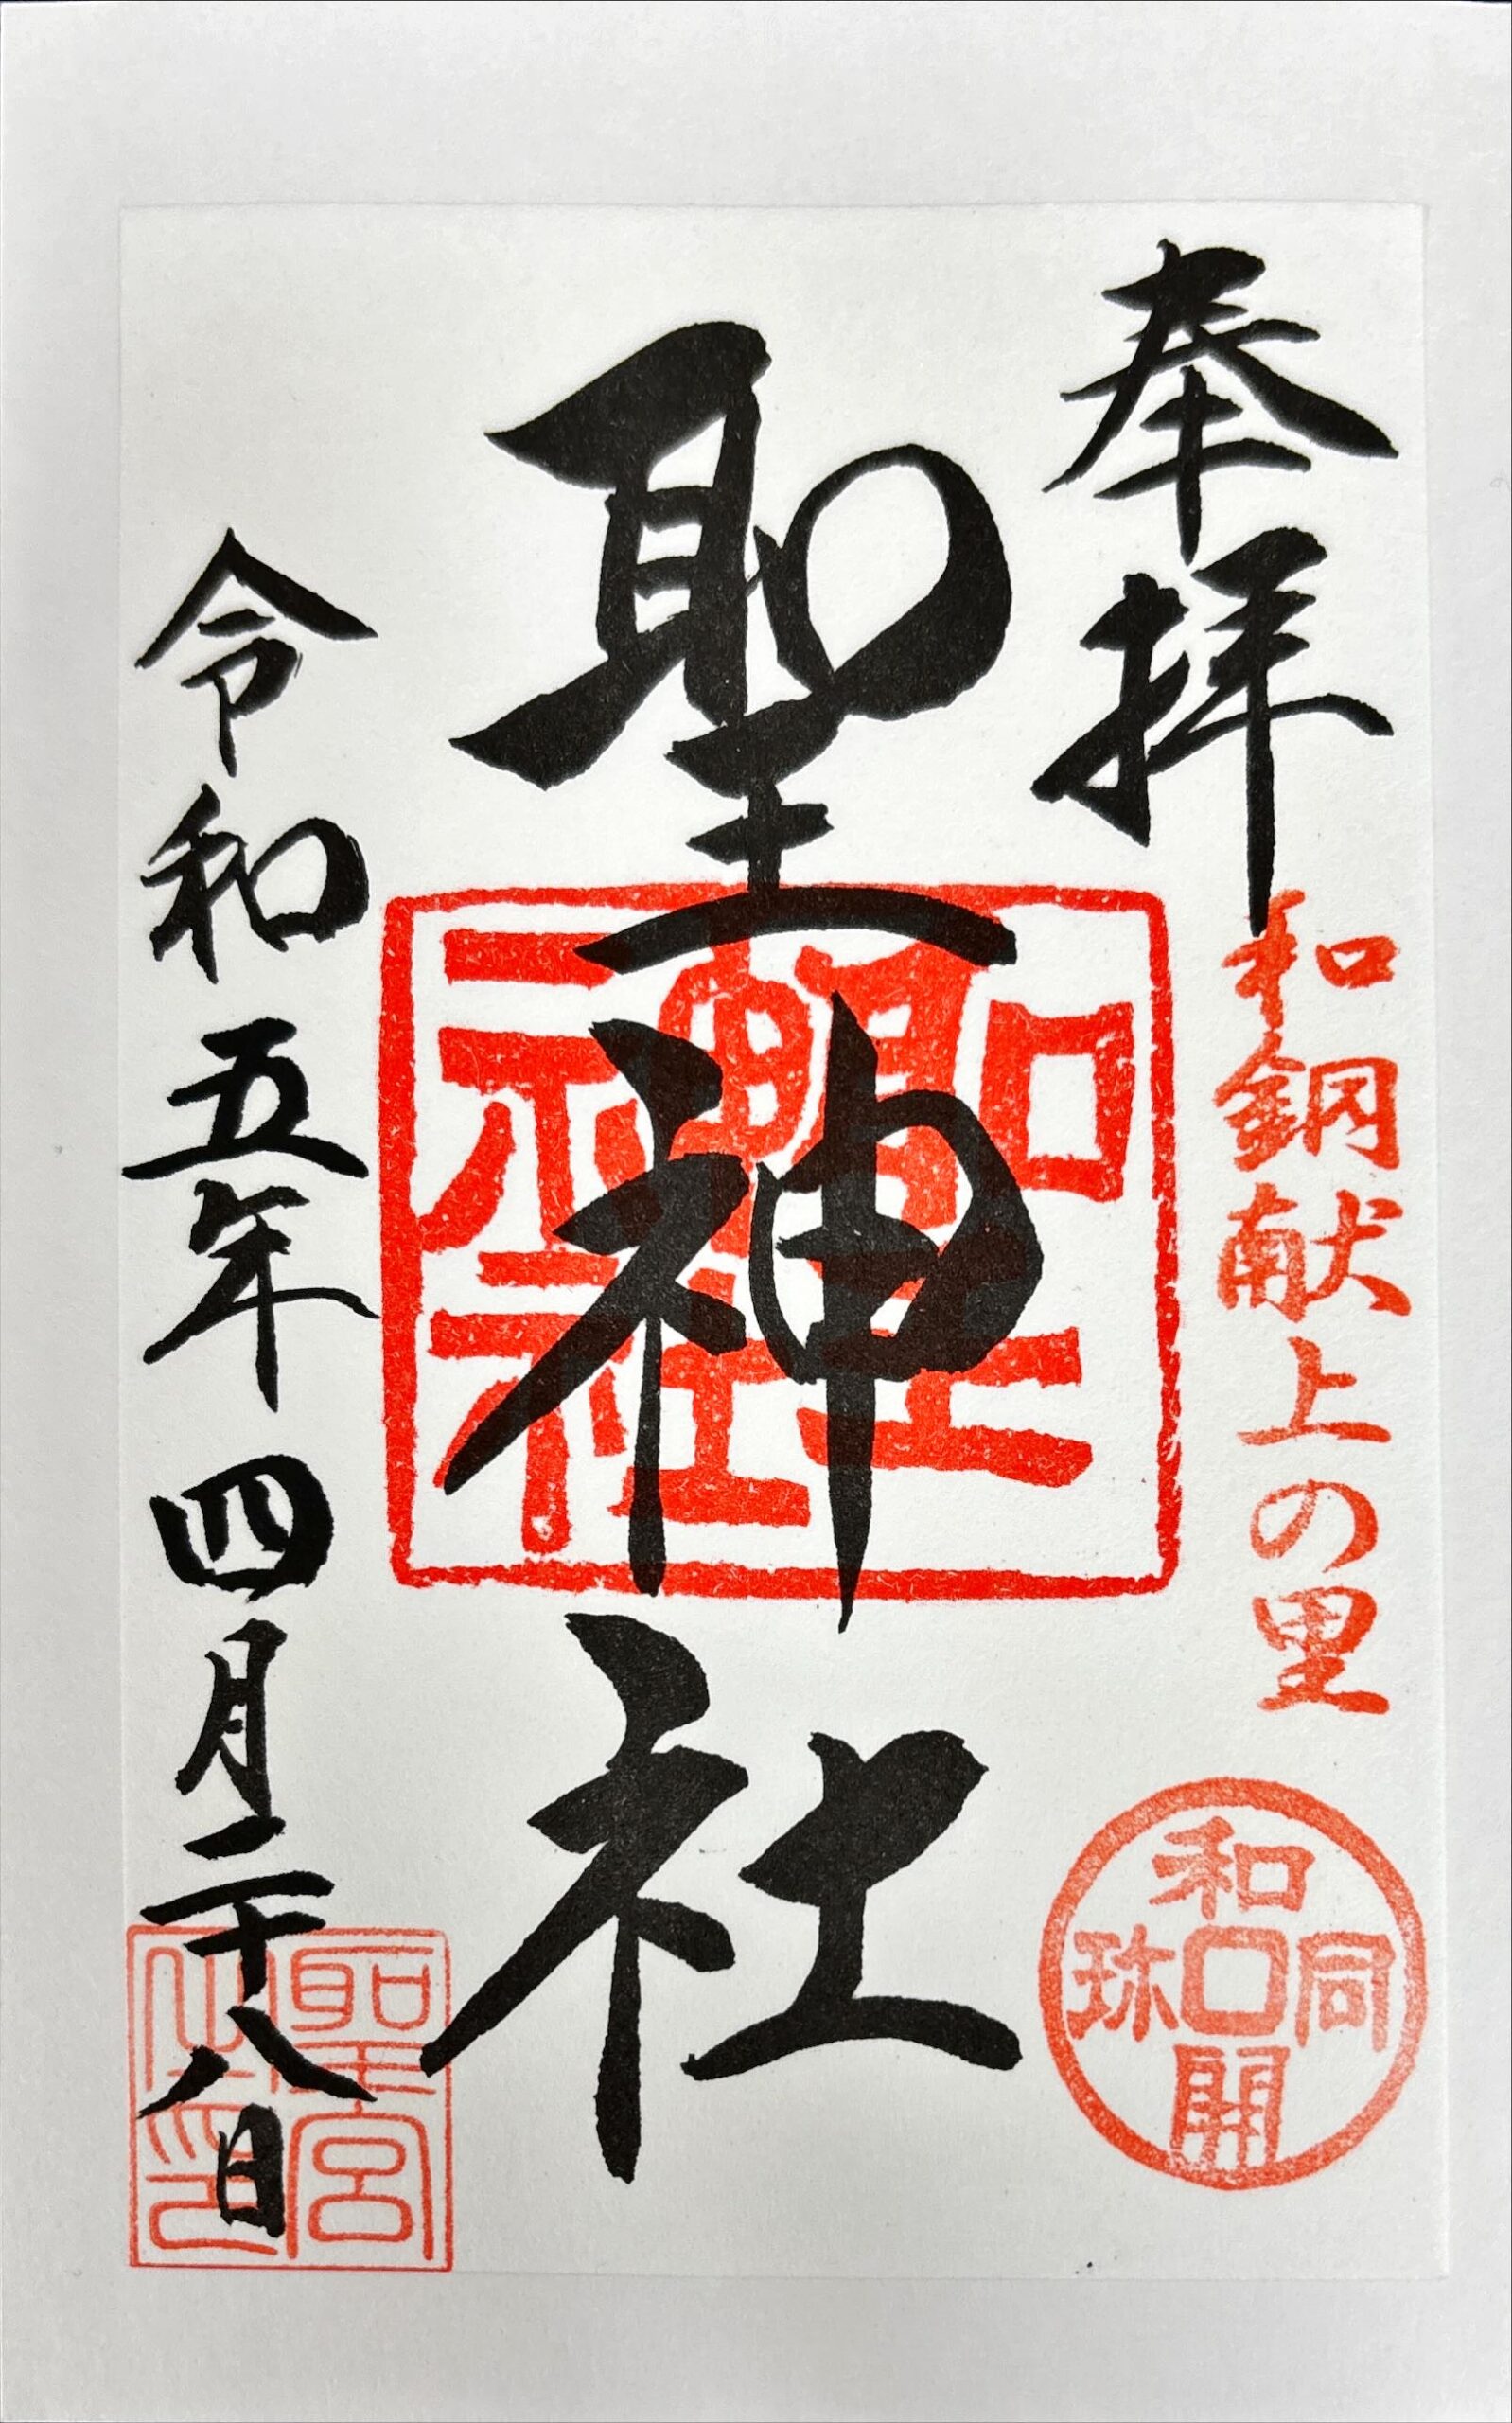 奉拝
和銅献上の里
和同開珎
聖神社
聖神社
令和五年四月二十八日
聖宮之印